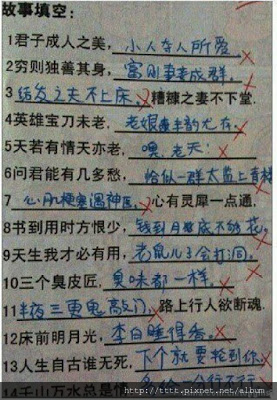 故事填空:
1君子成人之美, 小人夺人所爱
2穷则独善其身, 富则妻妾成群.
3 结发之夫不上床, 糟糠之妻不下堂.
4英雄宝刀未老. 老娘丰韵尤在.
5天若有情天亦老. 嘿.老天.
6问君能有几多愁, 恰似一群太监上青楼
7 心肌梗塞遇神医. 心有灵犀一点通.
8书到用时方恨少, 钱到月底不够花.
9天生我才必有用, 老鼠儿子会打洞.
10三个臭皮匠, 臭味都一样.
11半夜三更鬼敲门, 路上行人欲断魂.
12床前明月光, 李白睡得香.
13人生自古谁无死, 下个就要轮到你.
14千山万水总是情
http://tttt.pixnet.net/album